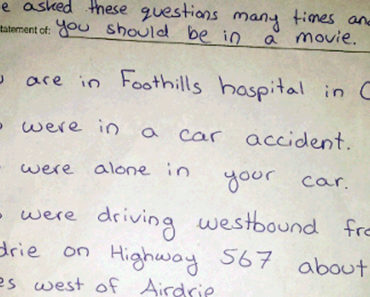 e asked these questions many times an
tatement of: you should be in a movie.
are in Foothills hospital in C
were in a car accident.
were alone in your car.
were driving westbound fr
drie on Highway 567 about
es west of Airdrie